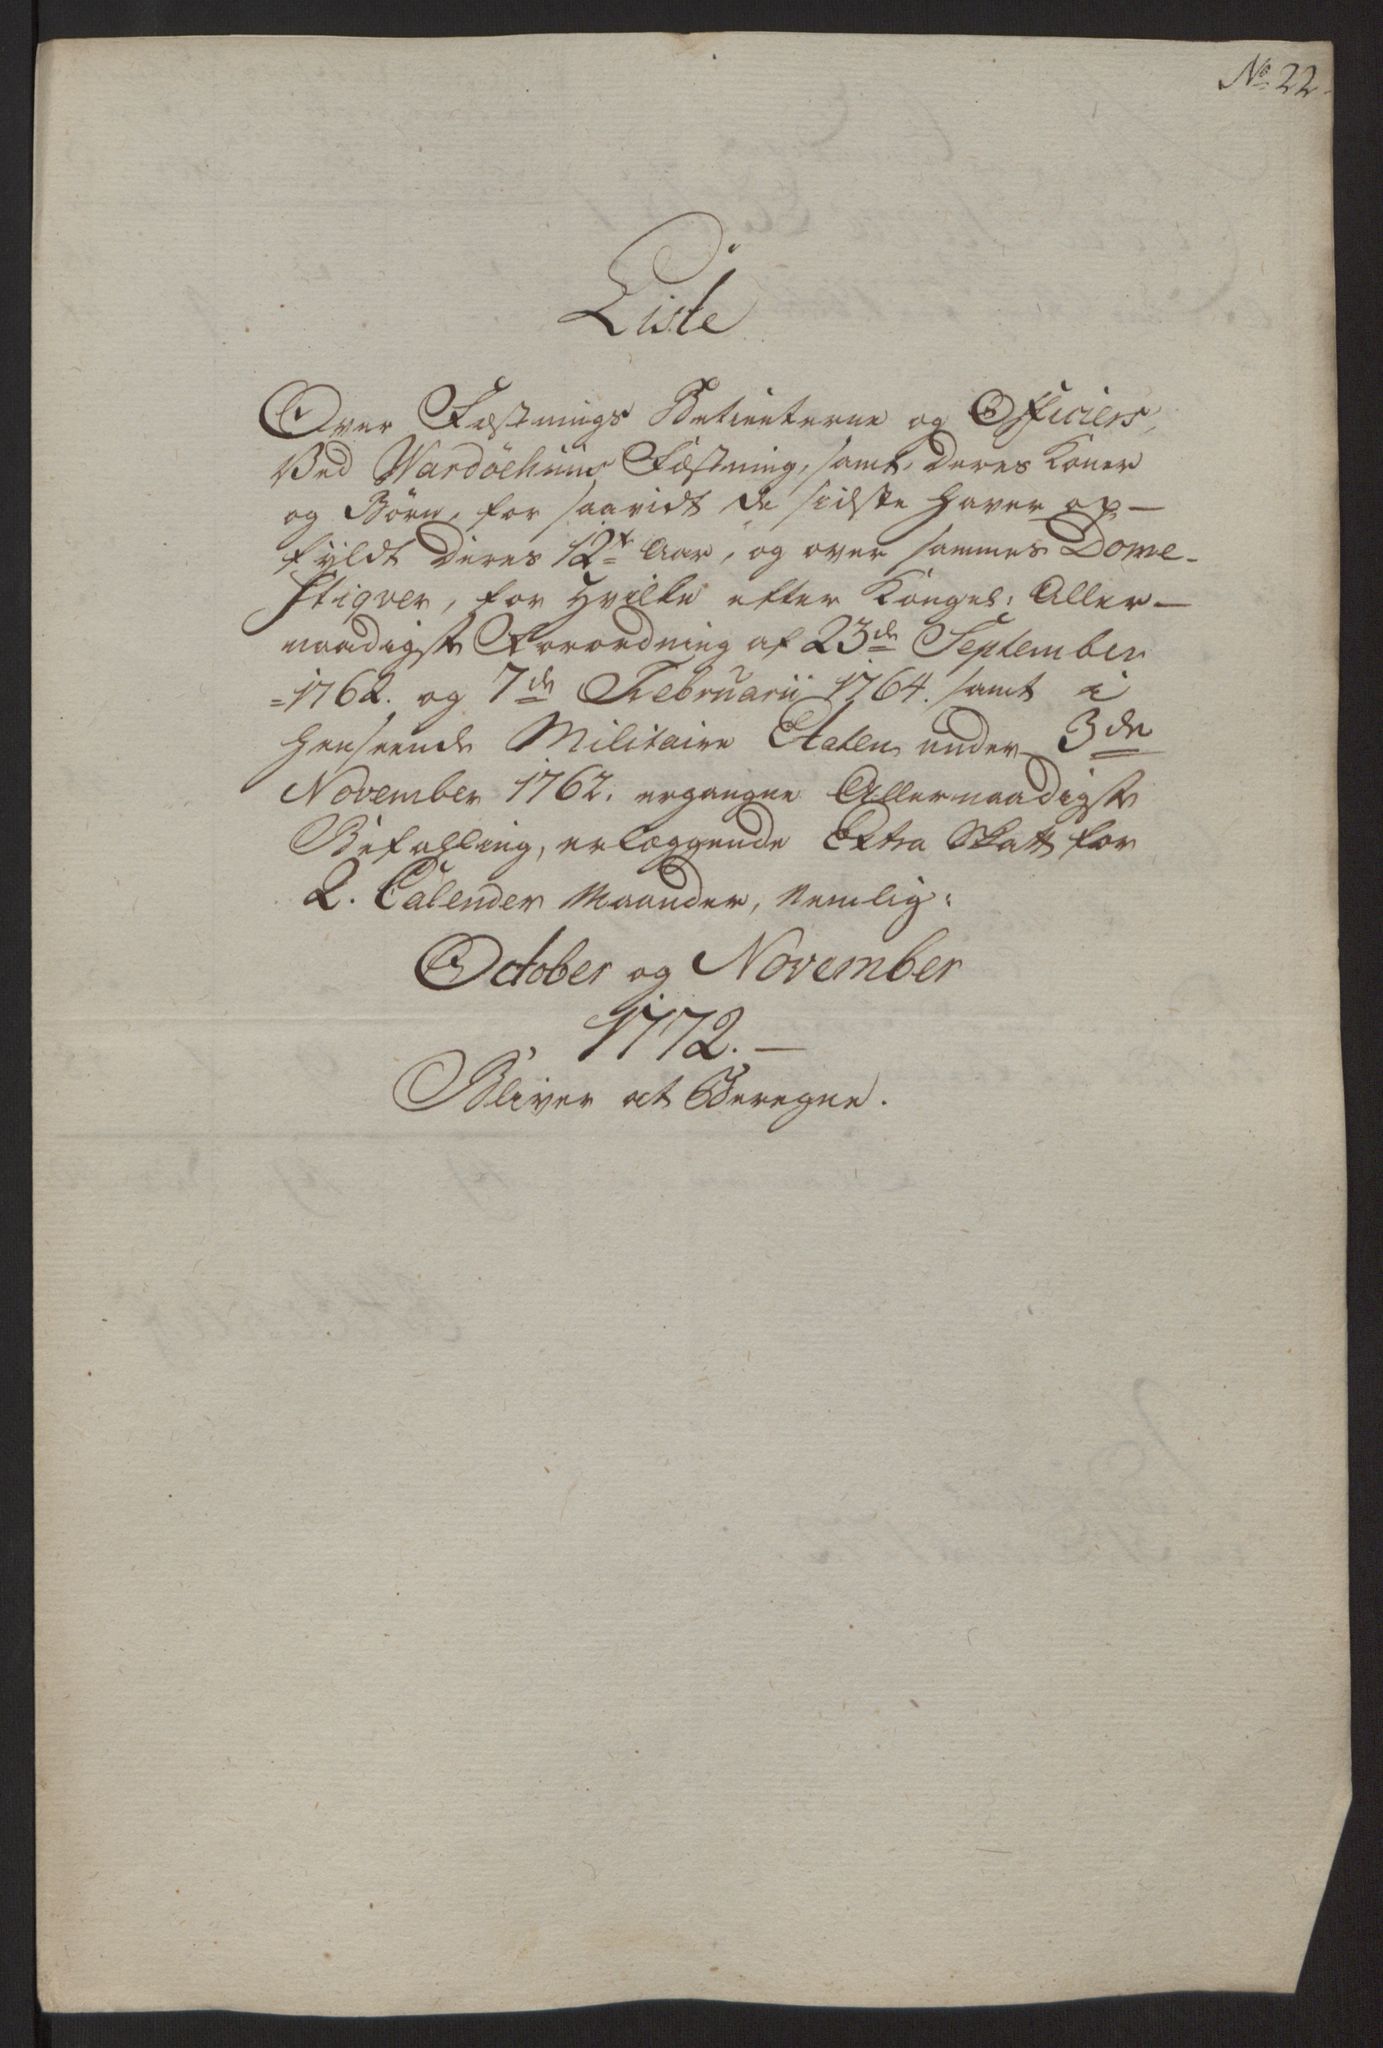 No 22.
Liste
Over Fæstnings Betienterne og Officiers,
Ved Wardöehuus Fæstning, samt deres Koner
og Börn, for saavidt de sidste haver op-
fyldt deres 12te Aar, og over sammes Dome-
stiqver, for hvilke efter Kongel: Aller-
naadigste Forordning af 23de September
=1762. og 7de Februarii 1764. samt i
henseende Militaire Etaten under 3de
November 1762. ergangne Allernaadigste
Befalling, erlæggende Extra Skatt for
2. Calender Maaneder, Nemlig:
October og November
1772.—
Bliver at Beregne.